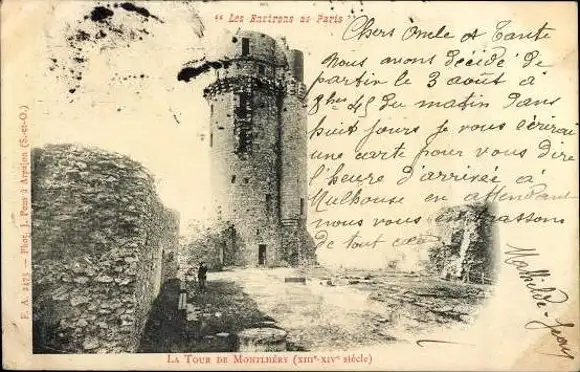 "Les Environs de Paris"
Chers Oncle et Tante
Nous avons décidé de
partir le 3 août à
8hes 45 du matin dans
huit jours je vous écrirai
une carte pour vous dire
l'heure d'arrivée à
Mulhouse en attendant
nous vous embrassons
de tout cœur
Mathilde Jeany
F. A. 2473 – Phot. J. Fous à Arpajon (S.-et-O.)
La Tour de Montlhéry (XIIIe-XIVe siècle)